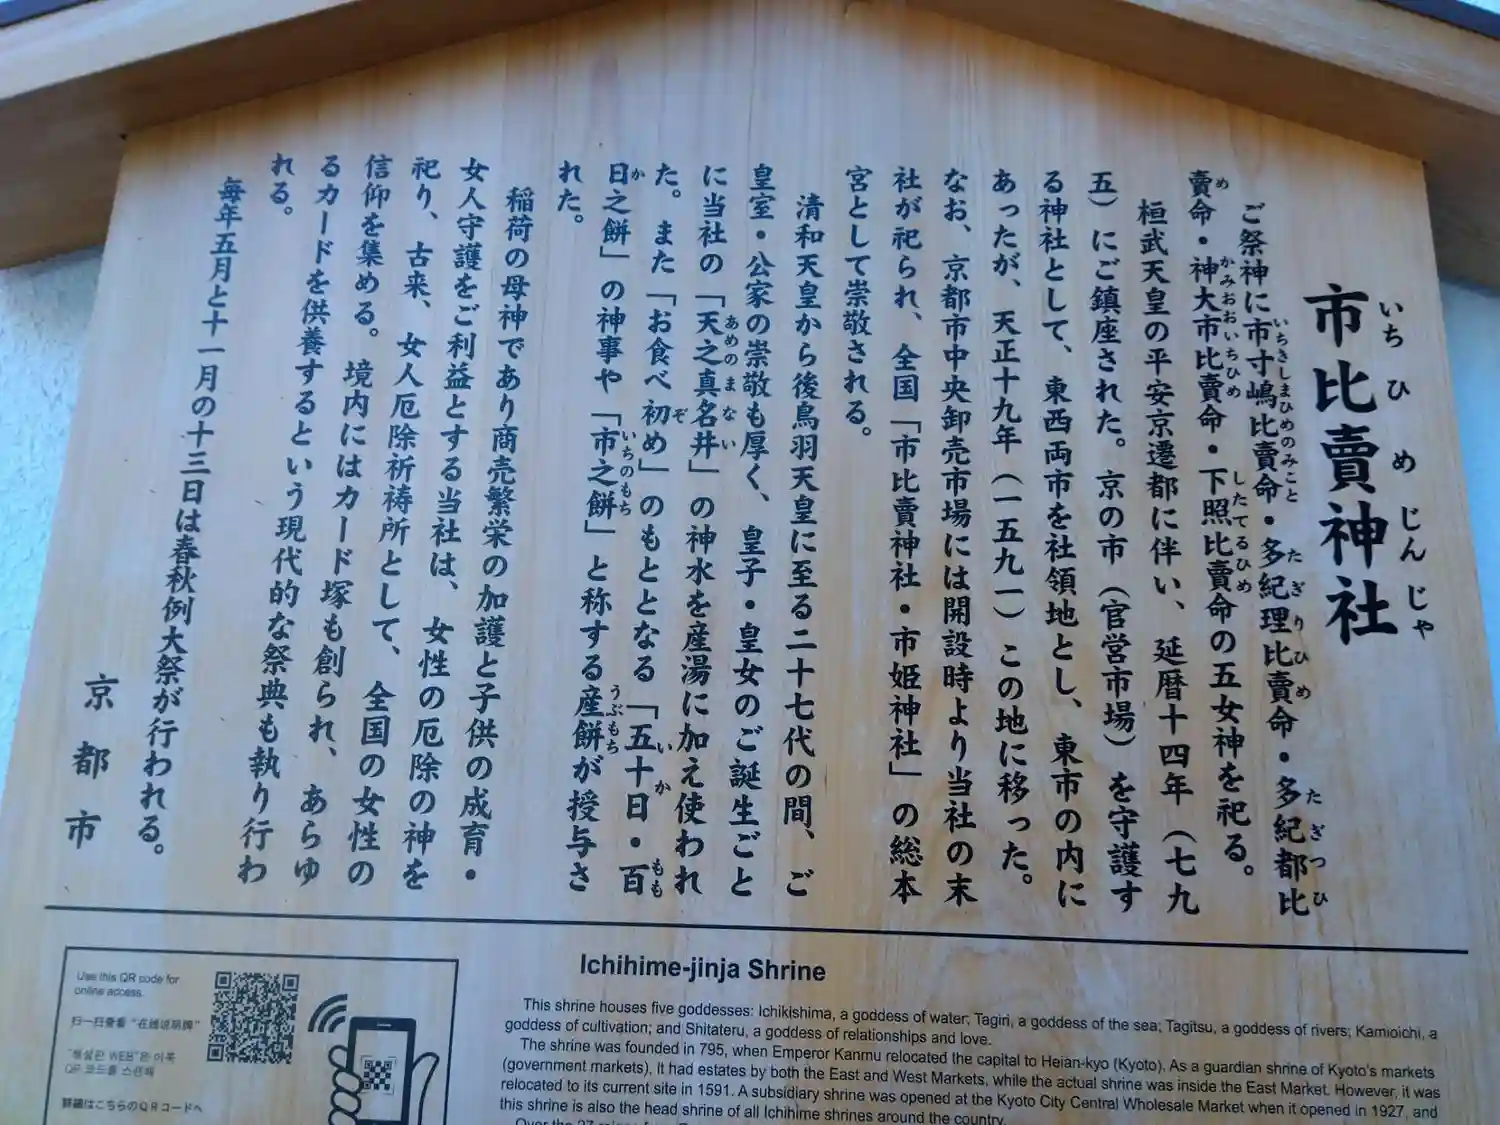 市比賣神社
いちひめじんじゃ
ご祭神に市寸嶋比賣命・多紀理比賣命・多紀都比
いちきしまひめのみこと たぎりひめ たぎつひ
賣命・神大市比賣命・下照比賣命の五女神を祀る。
め かみおおいちひめ したてるひめ
桓武天皇の平安京遷都に伴い、延暦十四年（七九
五）にご鎮座された。京の市（官営市場）を守護す
る神社として、東西両市を社領地とし、東市の内に
あったが、天正十九年（一五九一）この地に移った。
なお、京都市中央卸売市場には開設時より当社の末
社が祀られ、全国「市比賣神社・市姫神社」の総本
宮として崇敬される。
清和天皇から後鳥羽天皇に至る二十七代の間、ご
皇室・公家の崇敬も厚く、皇子・皇女のご誕生ごと
に当社の「天之真名井」の神水を産湯に加え使われ
あめのまない
た。また「お食べ初め」のもととなる「五十日・百
ぞ いか もも
日之餅」の神事や「市之餅」と称する産餅が授与さ
か いちのもち うぶもち
れた。
稲荷の母神であり商売繁栄の加護と子供の成育・
女人守護をご利益とする当社は、女性の厄除の神を
祀り、古来、女人厄除祈祷所として、全国の女性の
信仰を集める。境内にはカード塚も創られ、あらゆ
るカードを供養するという現代的な祭典も執り行わ
れる。
毎年五月と十一月の十三日は春秋例大祭が行われる。
京都市
Use this QR code for
online access.
扫一扫查看“在线说明牌”
"해설판 WEB"은 이쪽
QR 코드를 스캔해
詳細はこちらのQRコードへ
Ichihime-jinja Shrine
This shrine houses five goddesses: Ichikishima, a goddess of water; Tagiri, a goddess of the sea; Tagitsu, a goddess of rivers; Kamioichi, a
goddess of cultivation; and Shitateru, a goddess of relationships and love.
The shrine was founded in 795, when Emperor Kanmu relocated the capital to Heian-kyo (Kyoto). As a guardian shrine of Kyoto's markets
(government markets), it had estates by both the East and West Markets, while the actual shrine was inside the East Market. However, it was
relocated to its current site in 1591. A subsidiary shrine was opened at the Kyoto City Central Wholesale Market when it opened in 1927, and
this shrine is also the head shrine of all Ichihime shrines around the country.
Over the 27